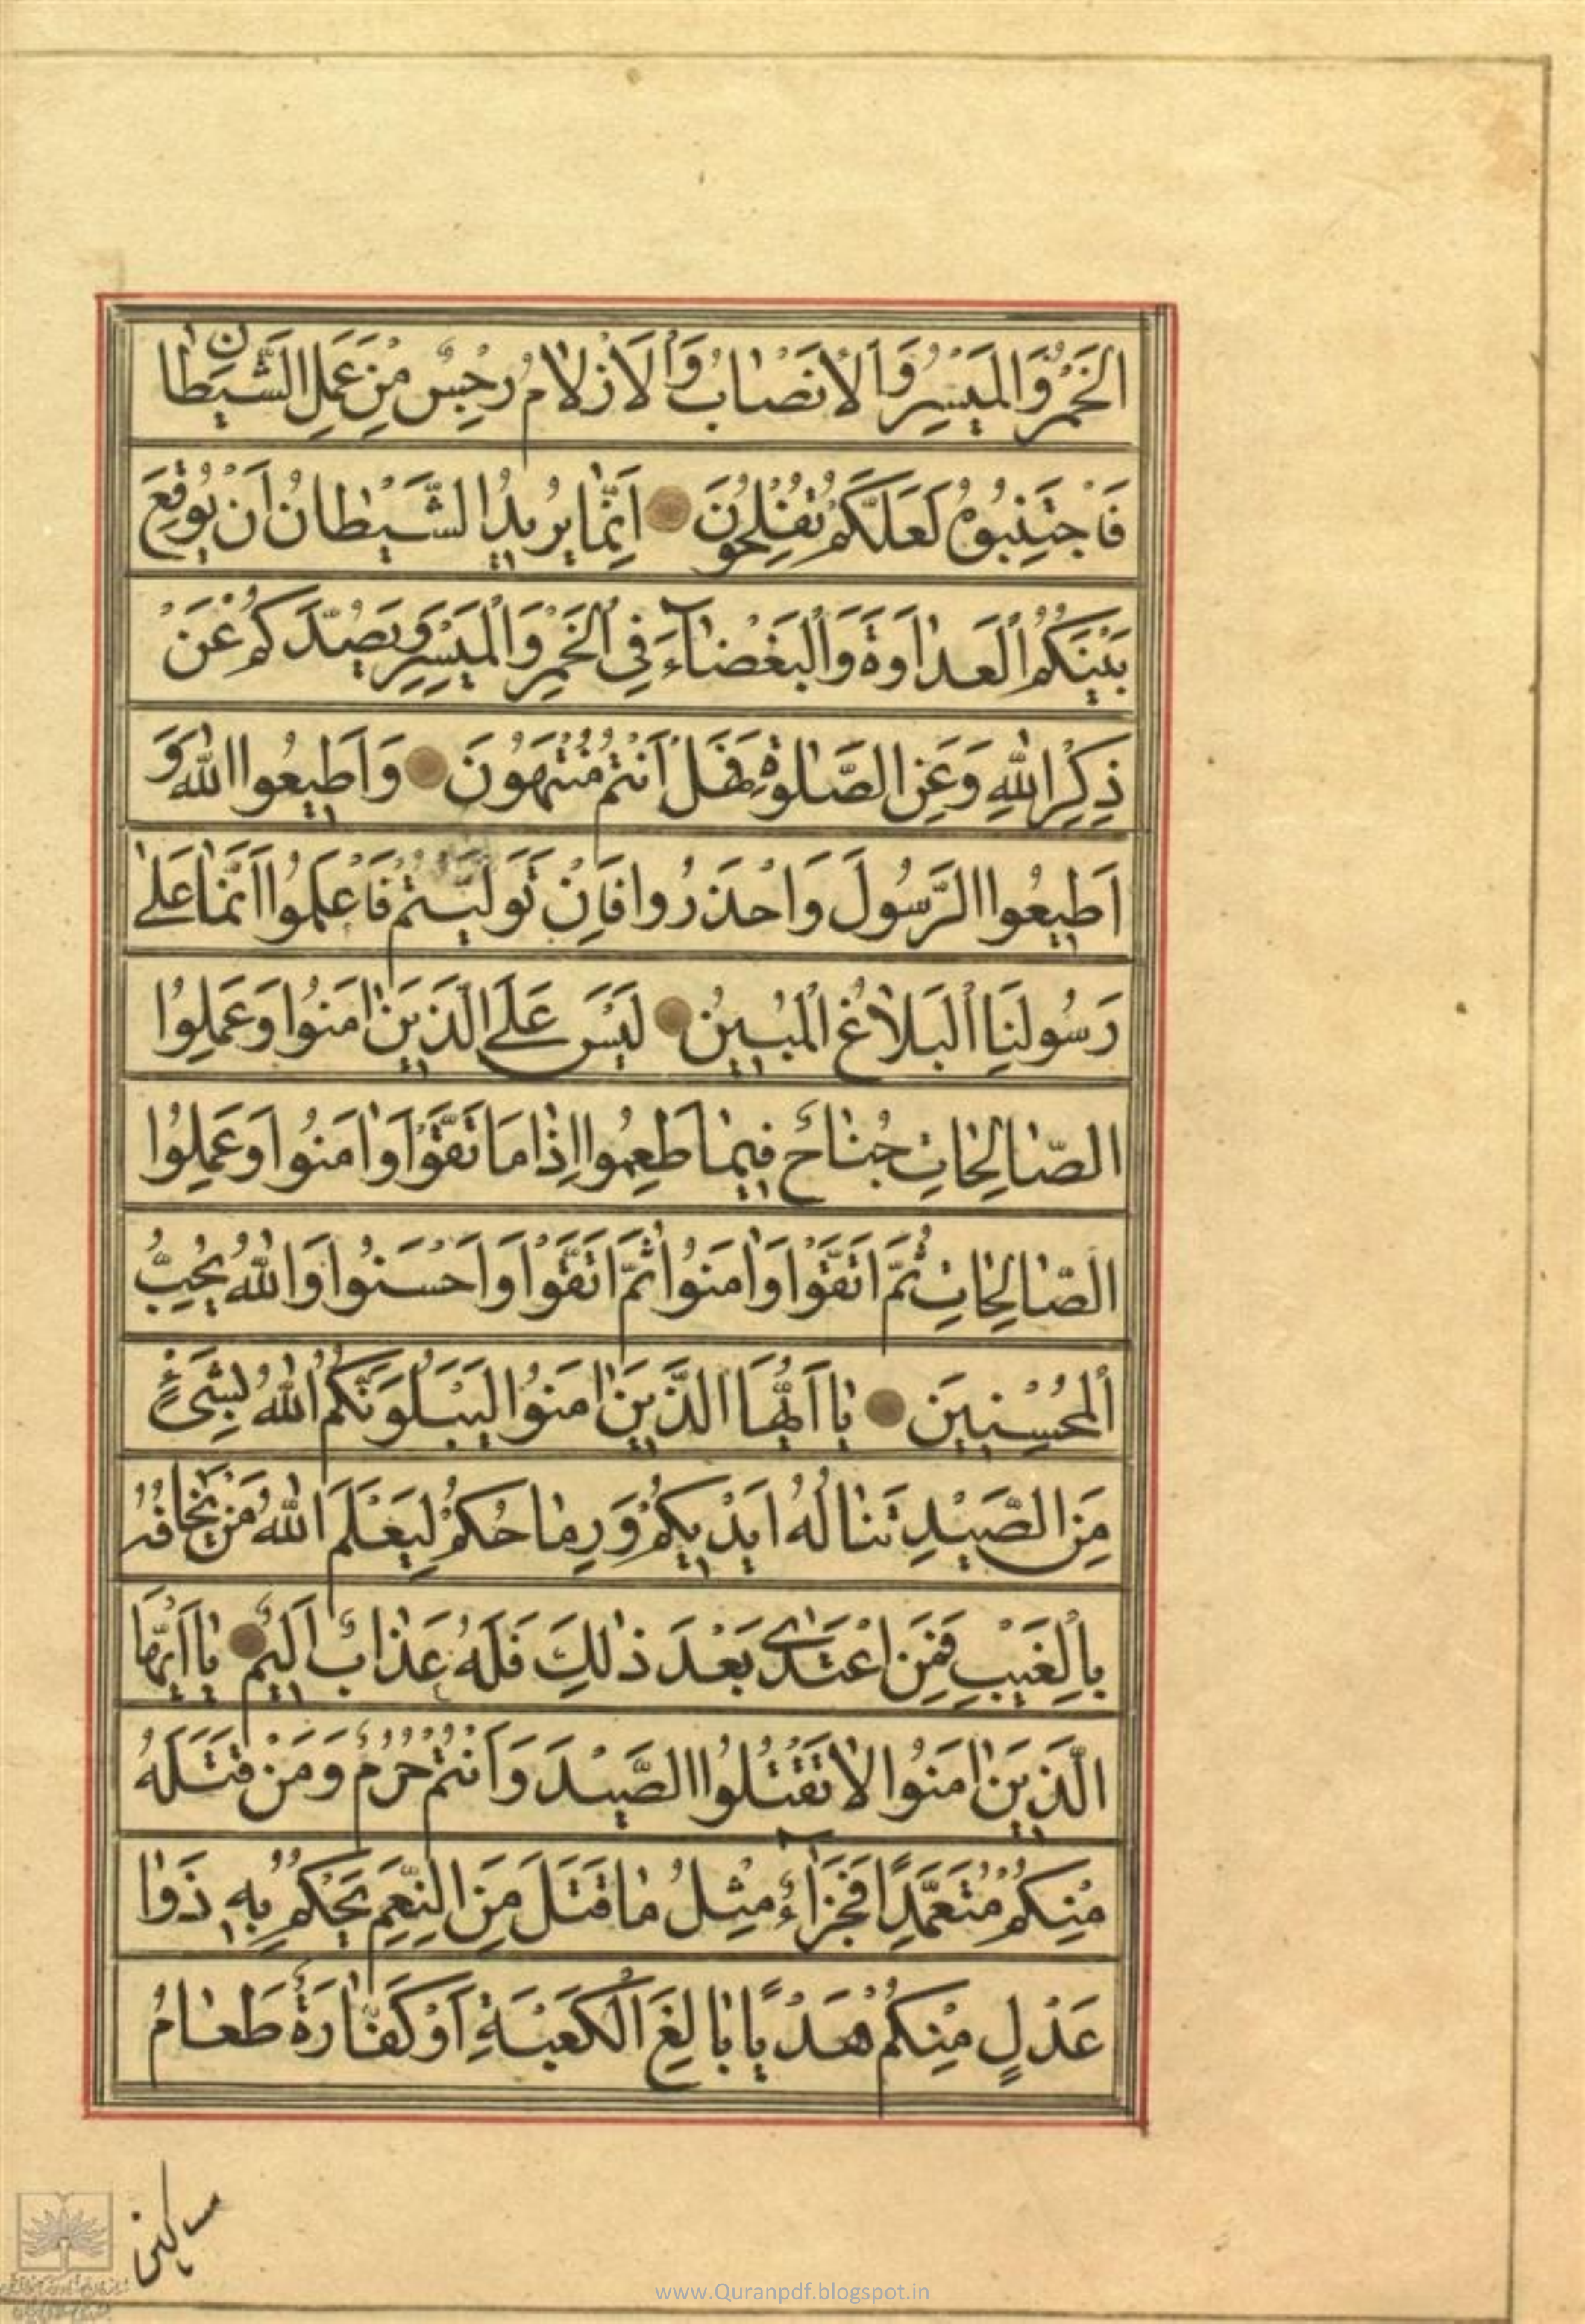 الْخَمْرُ وَالْمَيْسِرُ وَالْأَنْصَابُ وَالْأَزْلَامُ رِجْسٌ مِنْ عَمَلِ الشَّيْطَانِ
فَاجْتَنِبُوهُ لَعَلَّكُمْ تُفْلِحُونَ اِنَّمَا يُرِيدُ الشَّيْطَانُ اَنْ يُوقِعَ
بَيْنَكُمُ الْعَدَاوَةَ وَالْبَغْضَاءَ فِي الْخَمْرِ وَالْمَيْسِرِ وَيَصُدَّكُمْ عَنْ
ذِكْرِ اللّٰهِ وَعَنِ الصَّلٰوةِ فَهَلْ اَنْتُمْ مُنْتَهُونَ وَاَطِيعُوا اللّٰهَ وَ
اَطِيعُوا الرَّسُولَ وَاحْذَرُوا فَاِنْ تَوَلَّيْتُمْ فَاعْلَمُوا اَنَّمَا عَلٰى
رَسُولِنَا الْبَلَاغُ الْمُبِينُ لَيْسَ عَلَى الَّذِينَ اٰمَنُوا وَعَمِلُوا
الصَّالِحَاتِ جُنَاحٌ فِيمَا طَعِمُوا اِذَا مَا اتَّقَوْا وَاٰمَنُوا وَعَمِلُوا
الصَّالِحَاتِ ثُمَّ اتَّقَوْا وَاٰمَنُوا ثُمَّ اتَّقَوْا وَاَحْسَنُوا وَاللّٰهُ يُحِبُّ
الْمُحْسِنِينَ يَا اَيُّهَا الَّذِينَ اٰمَنُوا لَيَبْلُوَنَّكُمُ اللّٰهُ بِشَيْءٍ
مِنَ الصَّيْدِ تَنَالُهُ اَيْدِيكُمْ وَرِمَاحُكُمْ لِيَعْلَمَ اللّٰهُ مَنْ يَخَافُهُ
بِالْغَيْبِ فَمَنِ اعْتَدٰى بَعْدَ ذٰلِكَ فَلَهُ عَذَابٌ اَلِيمٌ يَا اَيُّهَا
الَّذِينَ اٰمَنُوا لَا تَقْتُلُوا الصَّيْدَ وَاَنْتُمْ حُرُمٌ وَمَنْ قَتَلَهُ
مِنْكُمْ مُتَعَمِّدًا فَجَزَاءٌ مِثْلُ مَا قَتَلَ مِنَ النَّعَمِ يَحْكُمُ بِهِ ذَوَا
عَدْلٍ مِنْكُمْ هَدْيًا بَالِغَ الْكَعْبَةِ اَوْ كَفَّارَةٌ طَعَامُ
مساكين
www.Quranpdf.blogspot.in